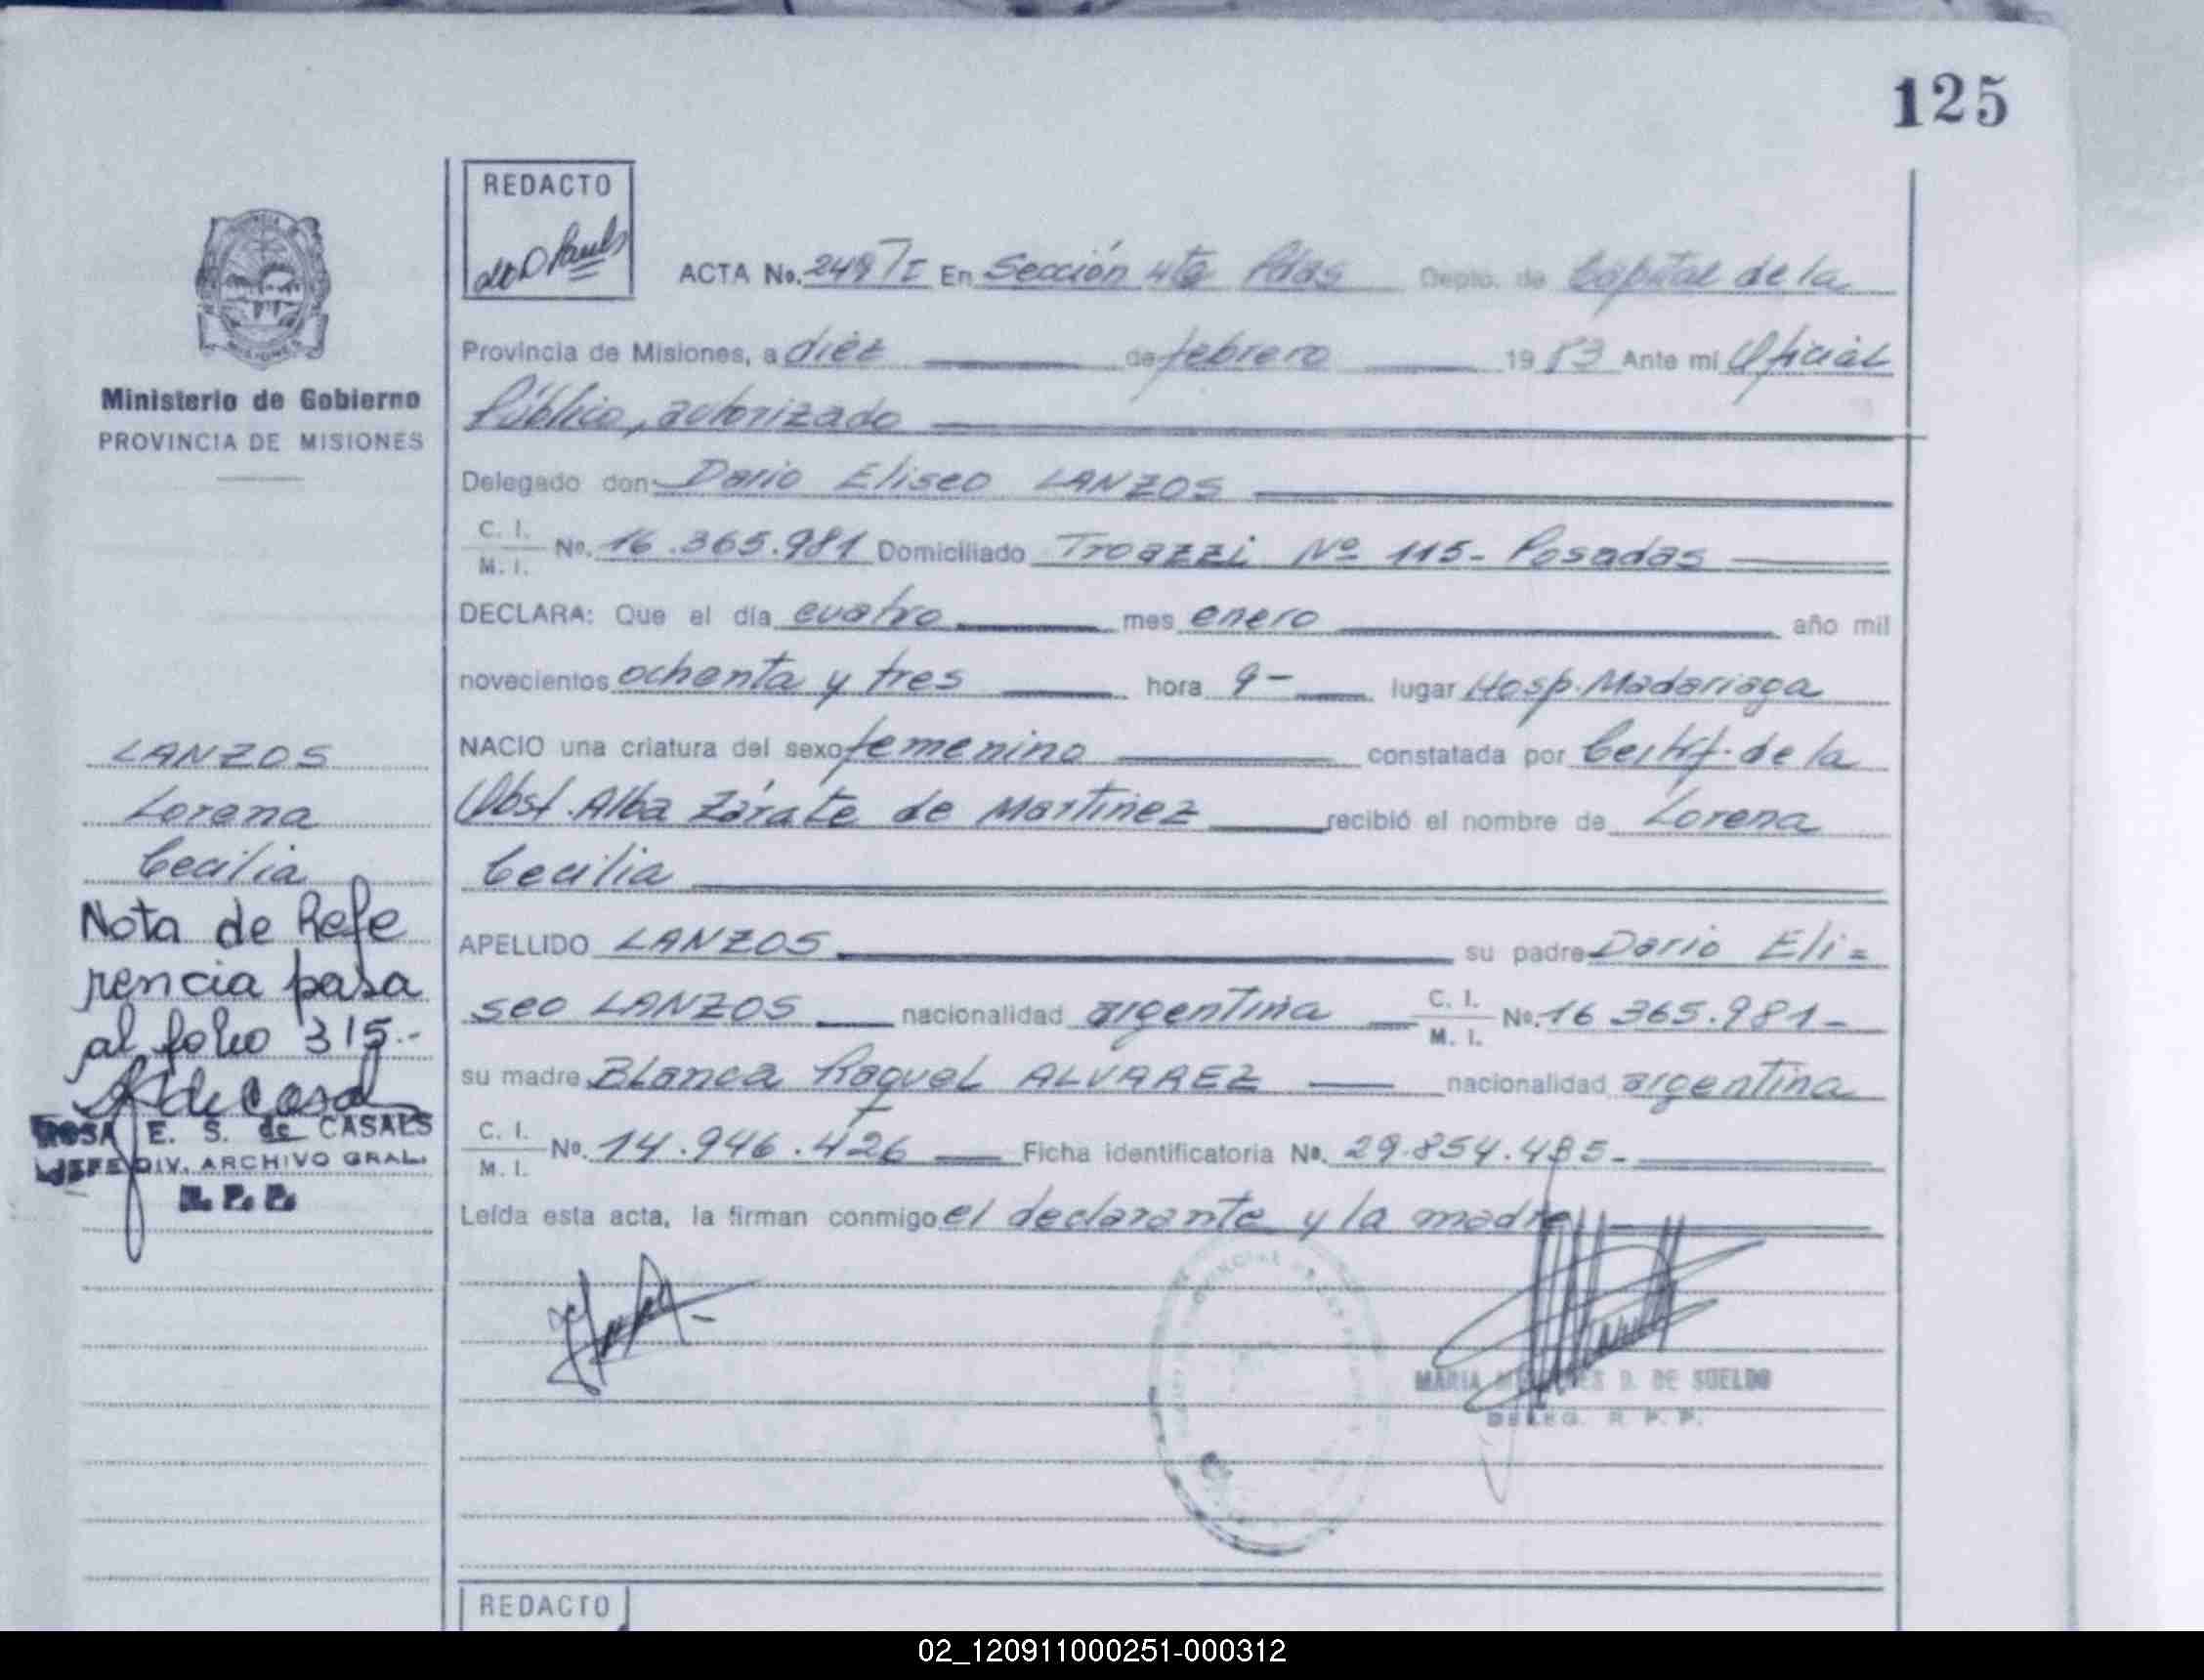 125
REDACTO
ACTA No. 249/I En Sección 4ta Pdas Depto. de Capital de la
Provincia de Misiones, a diez de febrero 1983 Ante mi Oficial
Público, autorizado
Ministerio de Gobierno
PROVINCIA DE MISIONES
Delegado don Dario Eliseo LANZOS
C. I. M. I. No. 16.365.981 Domiciliado Troazzi Nº 115- Posadas
DECLARA: Que el día cuatro mes enero año mil
novecientos ochenta y tres hora 9- lugar Hosp. Madariaga
NACIO una criatura del sexo femenino constatada por Certif. de la
Obst. Alba Zárate de Martinez recibió el nombre de Lorena
Cecilia
APELLIDO LANZOS su padre Dario Eli=
seo LANZOS nacionalidad argentina C. I. M. I. No. 16 365.981-
su madre Blanca Raquel ALVAREZ nacionalidad argentina
C. I. M. I. No. 14.946.426 Ficha identificatoria No. 29.854.485-
Leída esta acta, la firman conmigo el declarante y la madre
LANZOS
Lorena
Cecilia
Nota de Refe
rencia pasa
al folio 315.-
ROSA E. S. de CASALS
JEFE DIV. ARCHIVO GRAL.
R. P. P.
MARIA D. DE SUELDO
DELEG. R. P. P.
REDACTO
02_120911000251-000312